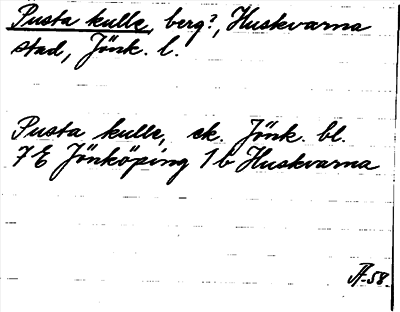 Pusta kulle, berg?, Huskvarna
stad, Jönk. l.
Pusta kulle, ek. Jönk. bl.
7E Jönköping 1b Huskvarna
-58.